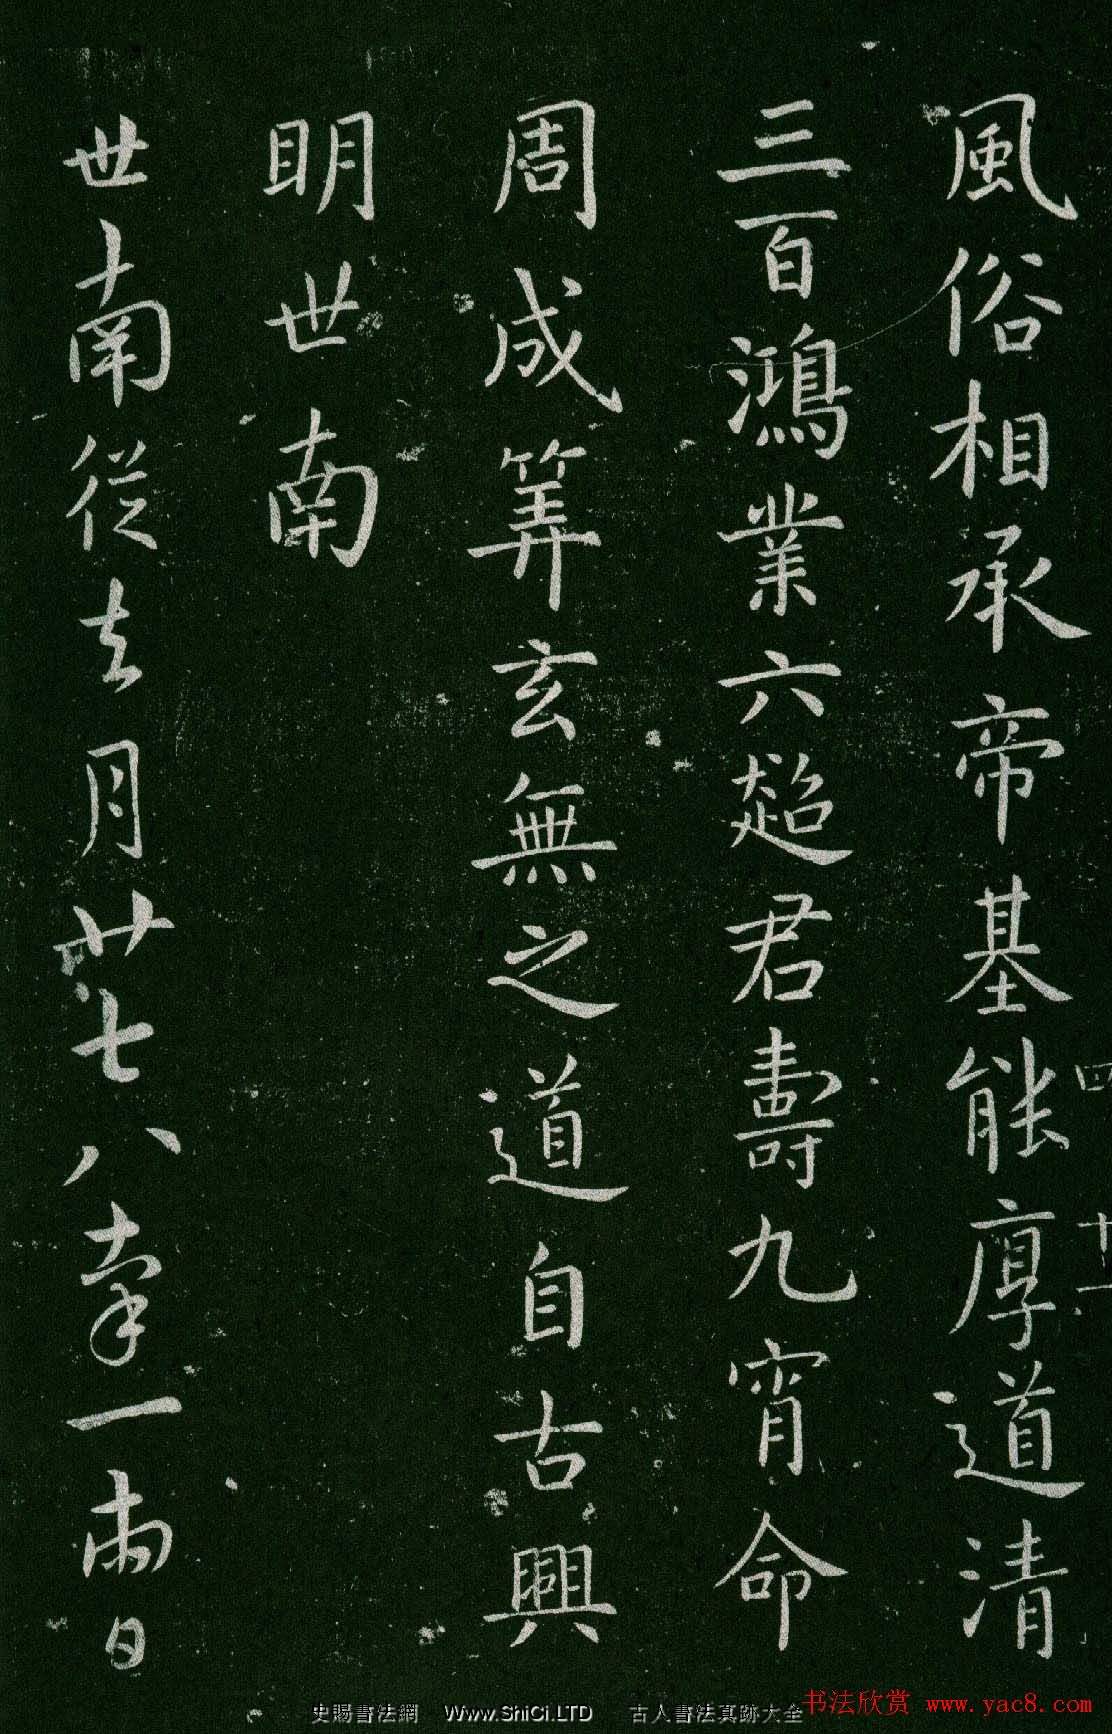 風俗相承帝基能厚道清
三百鴻業六超君壽九宵命
周成筭玄無之道自古興
明世南
世南從去月廿七八率一兩日
四
十一
史賜書法網 Www.ShiCi.LTD 古人書法真跡大全
书法欣赏 www.yac8.com